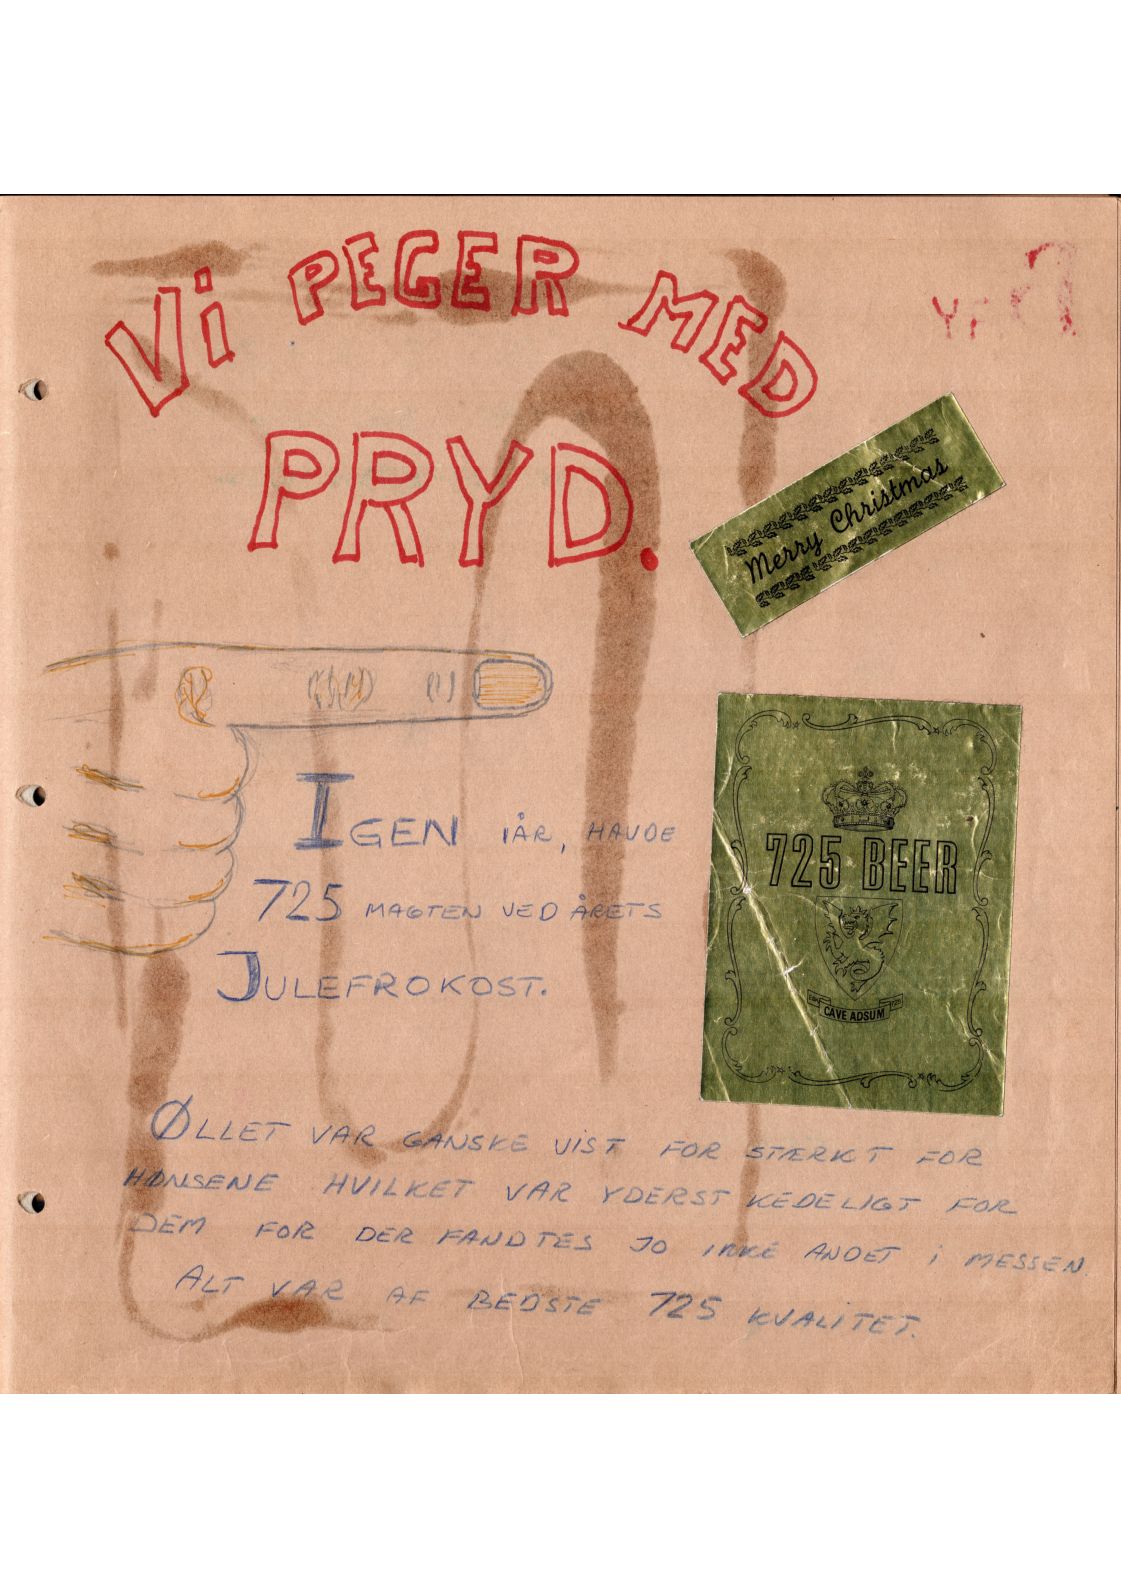 Vi PEGER MED
PRYD.
Merry Christmas
725 BEER
CAVE ADSUM
IGEN IÅR, HAVDE
725 MAGTEN VED ÅRETS
JULEFROKOST.
ØLLET VAR GANSKE VIST FOR STÆRKT FOR
HØNSENE HVILKET VAR YDERST KEDELIGT FOR
DEM FOR DER FANDTES JO IKKE ANDET i MESSEN.
ALT VAR AF BEDSTE 725 KVALITET.